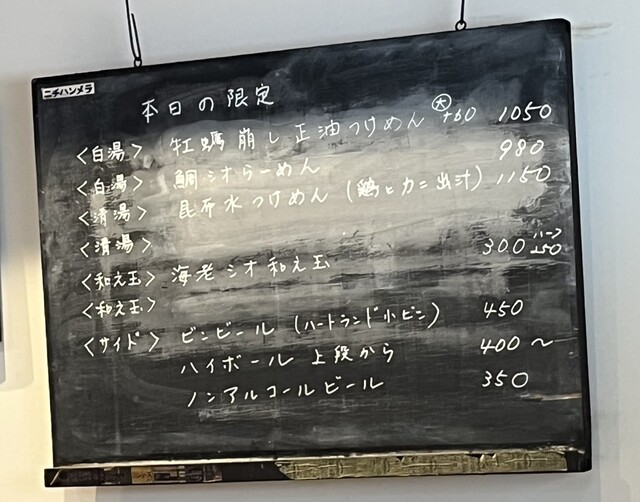 ニチハンメラ
本日の限定
<白湯> 牡蠣崩し正油つけめん 大+60 1050
<白湯> 鯛シオらーめん 980
<清湯> 昆布水つけめん (鶏とカニ出汁) 1150
<清湯>
<和え玉> 海老シオ和え玉 300 ハーフ
<和え玉>
<サイド> ビンビール (ハートランド小ビン) 450
ハイボール 上段から 400〜
ノンアルコールビール 350